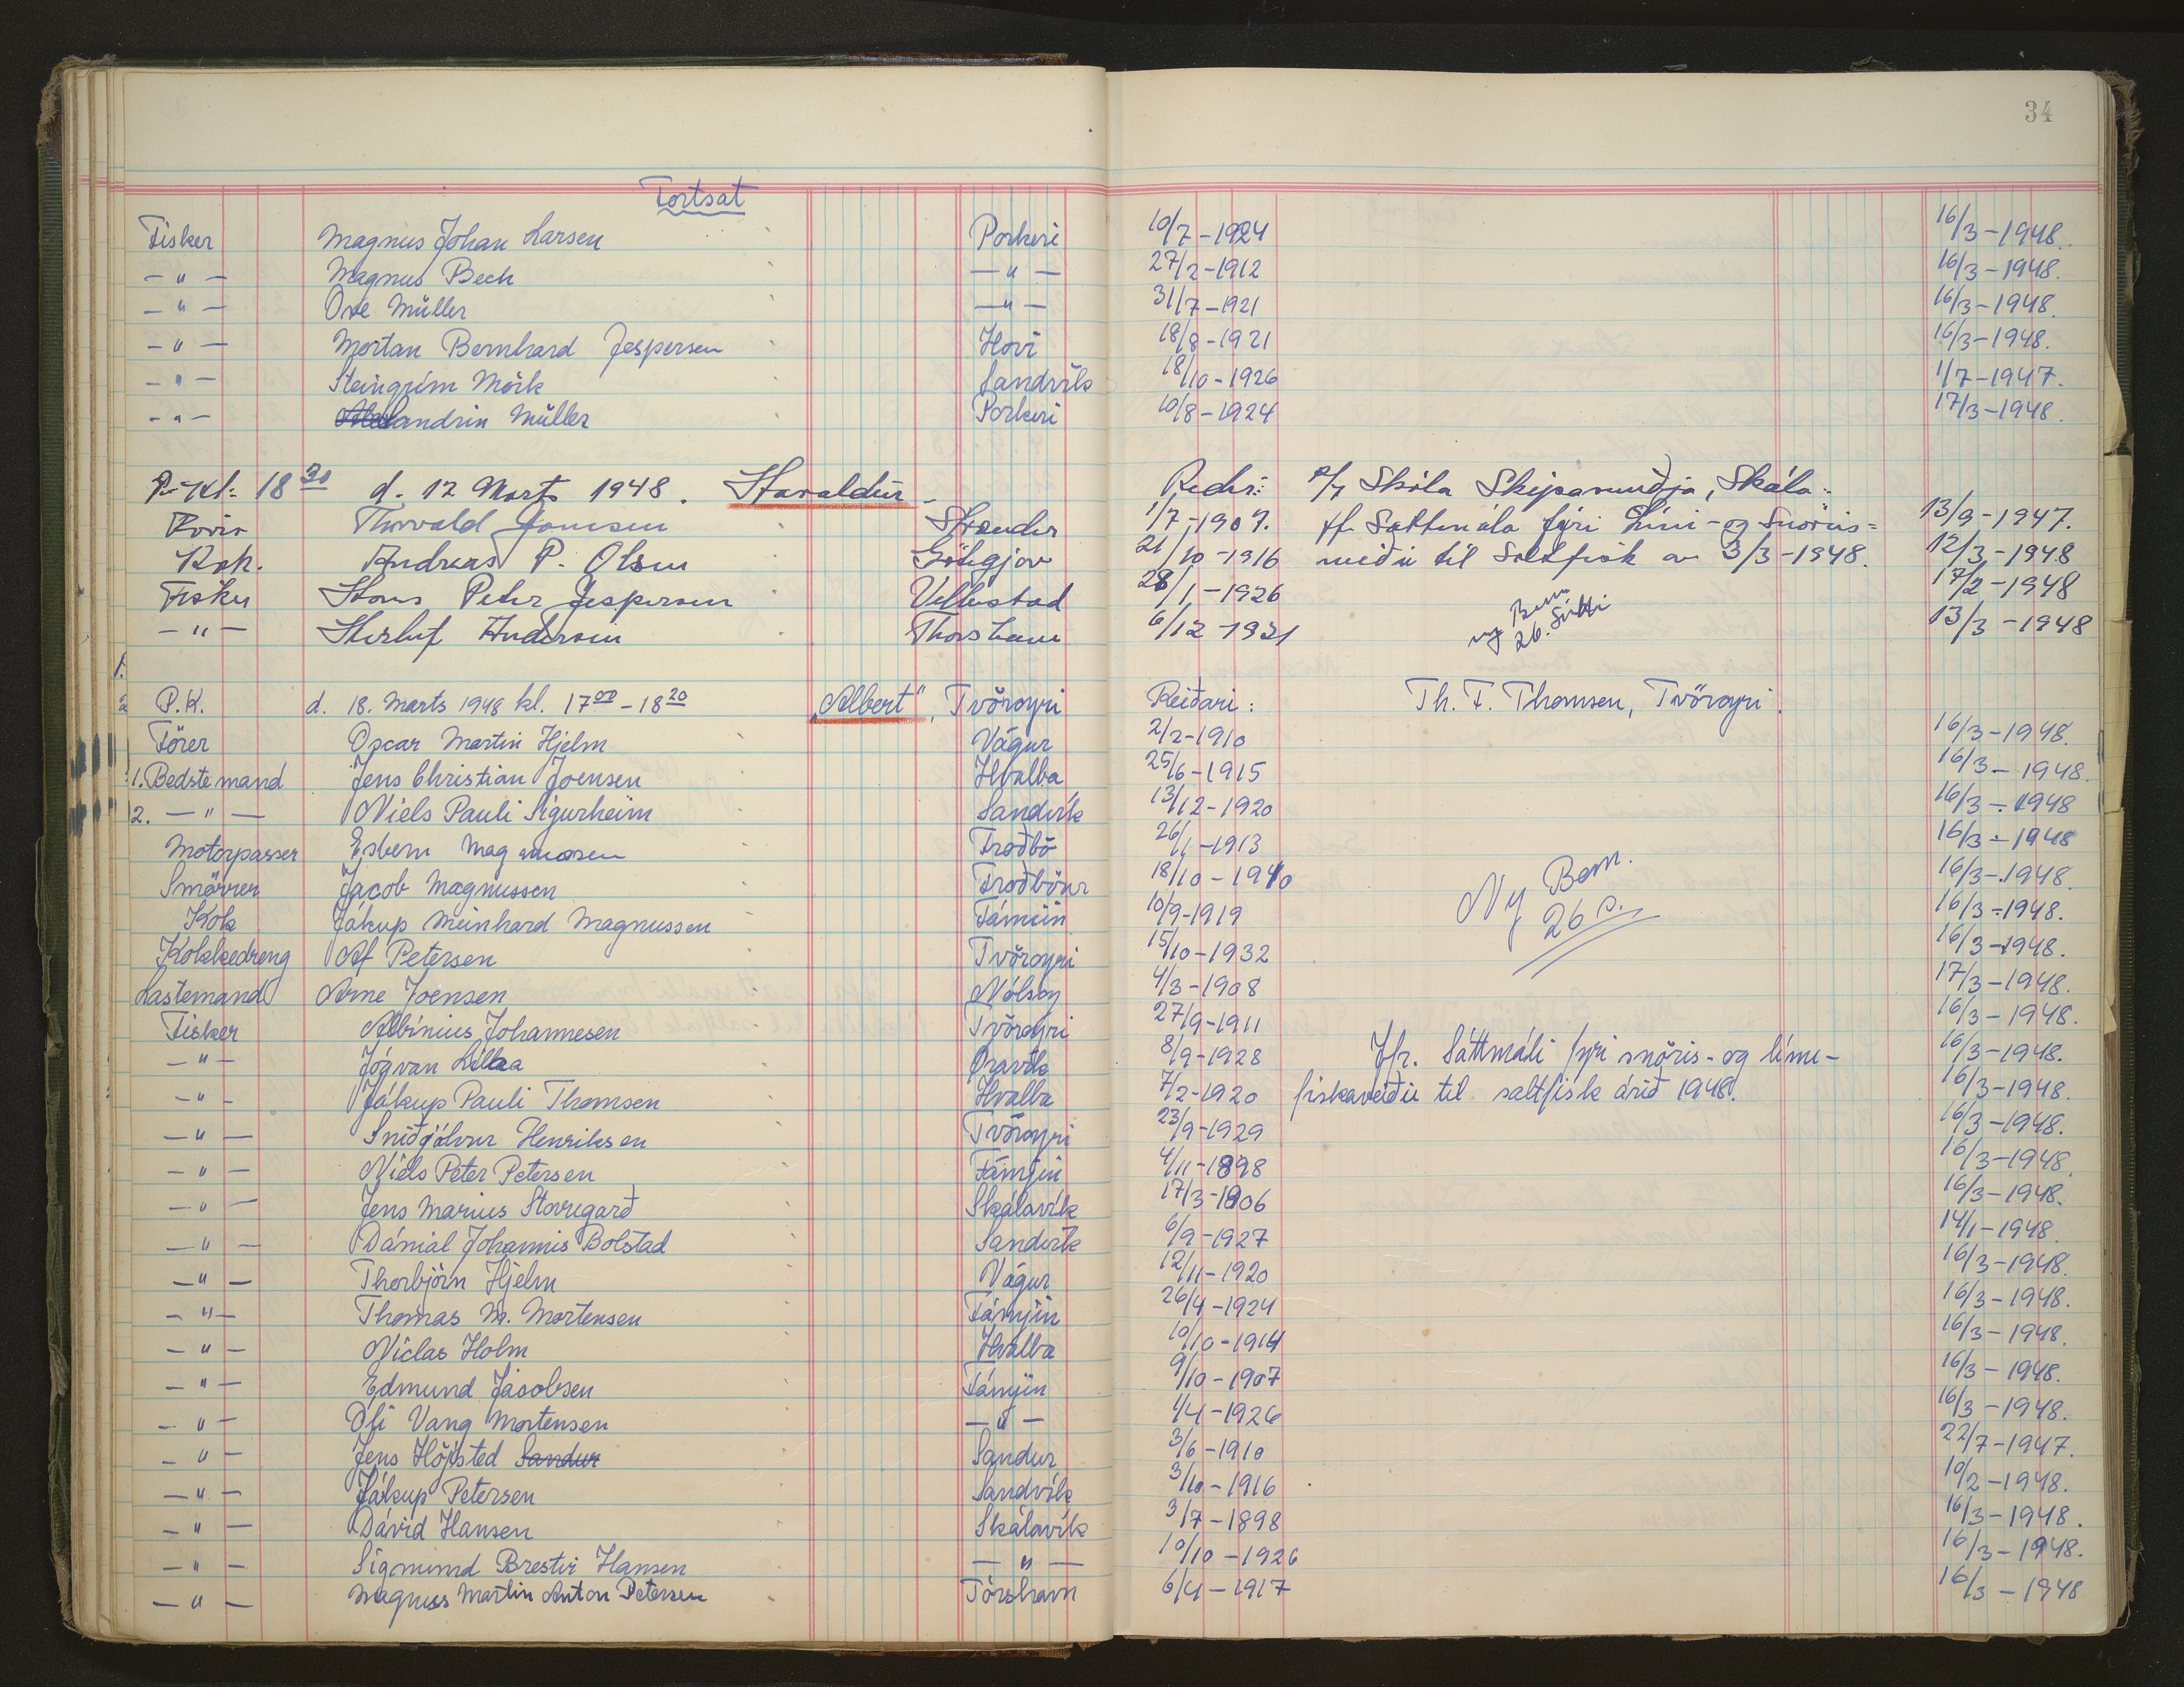 34
Fortsat
Fisker Magnus Johan Larsen Porkeri 10/7-1924 16/3-1948.
-"- Magnus Bech -"- 27/2-1912 16/3-1948.
-"- Ove Müller -"- 31/7-1921 16/3-1948.
-"- Mortan Bernhard Jespersen Hovi 18/8-1921 16/3-1948.
-"- Steingrím Mörk Sandvík 18/10-1926 1/7-1947.
-"- andrin Müller Porkeri 10/8-1924 17/3-1948.
P-Kl: 18 30 d. 17 Marts 1948. Haraldur Redri: P/F Skála Skipasmiðja, Skála.
Thorvald Joensen Strender 1/7-1907. Sattmála fyri Línu- og Snöris= 13/9-1947.
Kok. Andreas P. Olsen Götugjov 21/10-1916 veiðu til Saltfisk av 3/3-1948. 12/3-1948
Fisker Hans Peter Jespersen Velbestad 28/1-1926 17/2-1948
-"- Herluf Andersen Thorshavn 6/12-1931 ny Bem 26. 13/3-1948
P.K. d. 18. Marts 1948 kl. 17 00 - 18 20 "Albert", Tvöroyri Reiðari: Th. F. Thomsen, Tvöroyri.
Förer Oscar Martin Hjelm Vágur 2/2-1910 16/3-1948.
1. Bedstemand Jens Christian Joensen Hvalba 25/6-1915 16/3-1948.
2. -"- Niels Pauli Sigurheim Sandvík 13/12-1920 16/3-1948
Motorpasser Esbern Magnussen Froðbö 26/1-1913 16/3-1948
Smörer Jacob Magnussen Froðböur 18/10-1910 16/3-1948.
Kok Jákup Meinhard Magnussen Fámiin 10/9-1919 Ny Bem. 26 s. 16/3-1948.
Kokkedreng Alf Petersen Tvöroyri 15/10-1932 16/3-1948.
Lastemand Arne Joensen Nólsoy 4/3-1908 17/3-1948.
Fisker Albinius Johannesen Tvöroyri 27/9-1911 16/3-1948.
-"- Jógvan Lillaa Øravík 8/9-1928 Jfr. Sáttmáli fyri snöris- og línu- 16/3-1948.
-"- Jákup Pauli Thomsen Hvalba 7/2-1920 fiskaveiðu til saltfisk árið 1948. 16/3-1948.
-"- Sniðgálvur Henriksen Tvöroyri 23/9-1929 16/3-1948.
-"- Niels Peter Petersen Fámjin 4/11-1898 16/3-1948.
-"- Jens Marius Stovugarð Skálavík 17/3-1906 16/3-1948.
-"- Dánial Johannis Bolstad Sandvík 6/9-1927 14/1-1948.
-"- Thorbjörn Hjelm Vágur 12/11-1920 16/3-1948.
-"- Thomas M. Mortensen Fámjin 26/4-1924 16/3-1948.
-"- Niclas Holm Hvalba 10/10-1914 16/3-1948.
-"- Edmund Jacobsen Fámjin 9/10-1907 16/3-1948.
-"- Ofi Vang Mortensen -"- 1/4-1926 16/3-1948.
-"- Jens Höjsted Sandur Sandur 3/6-1910 22/7-1947.
-"- Jákup Petersen Sandvík 3/10-1916 10/2-1948.
-"- Dávid Hansen Skálavík 3/7-1898 16/3-1948.
-"- Sigmund Brestir Hansen -"- 10/10-1926 16/3-1948.
-"- Magnus Martin Anton Petersen Tórshavn 6/4-1917 16/3-1948